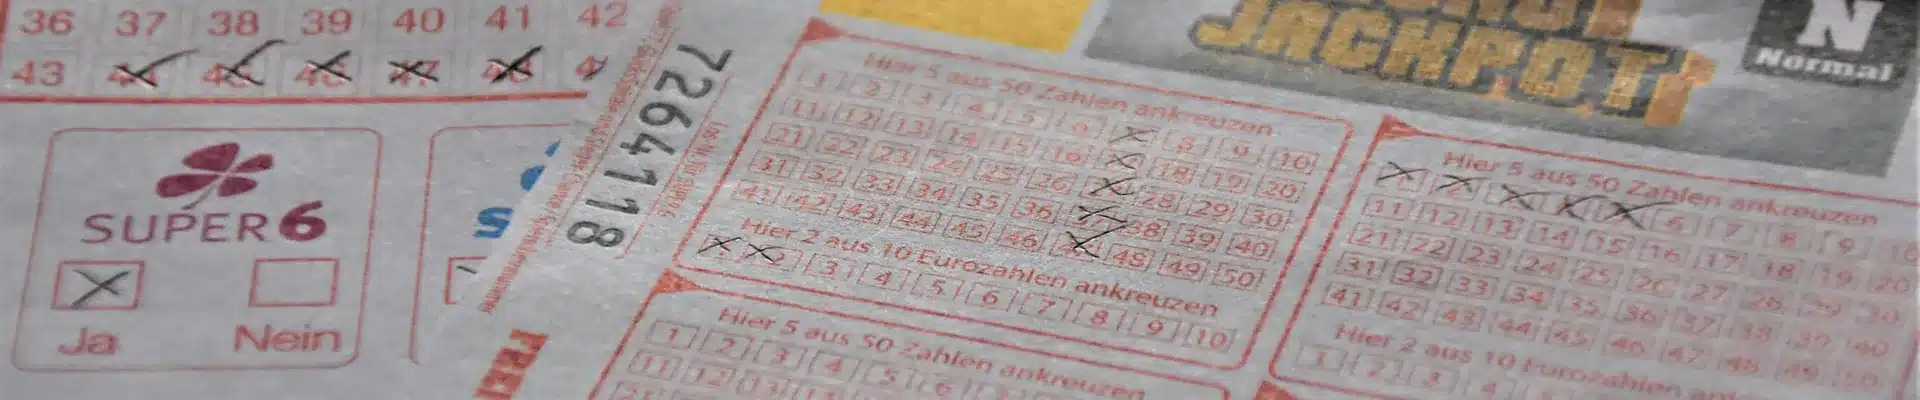 36 37 38 39 40 41 42
43 44 45 46 47 48
SUPER 6
Ja Nein
7264118
JACKPOT
N
Normal
Hier 5 aus 50 Zahlen ankreuzen
1 2 3 4 5 6 7 8 9 10
11 12 13 14 15 16 17 18 19 20
21 22 23 24 25 26 27 28 29 30
31 32 33 34 35 36 37 38 39 40
41 42 43 44 45 46 47 48 49 50
Hier 2 aus 10 Eurozahlen ankreuzen
1 2 3 4 5 6 7 8 9 10
Hier 5 aus 50 Zahlen ankreuzen
1 2 3 4 5 6 7 8 9 10
11 12 13 14 15 16 17 18 19 20
21 22 23 24 25 26 27 28 29 30
31 32 33 34 35 36 37 38 39 40
41 42 43 44 45 46 47 48 49 50
Hier 2 aus 10 Eurozahlen
1 2 3 4
Hier 5 aus 50 Zahlen ankreuzen
1 2 3 4 5 6
11 12 13
21